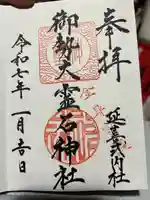 奉拝
延喜式内社
御勢大霊石神社
令和七年一月吉日